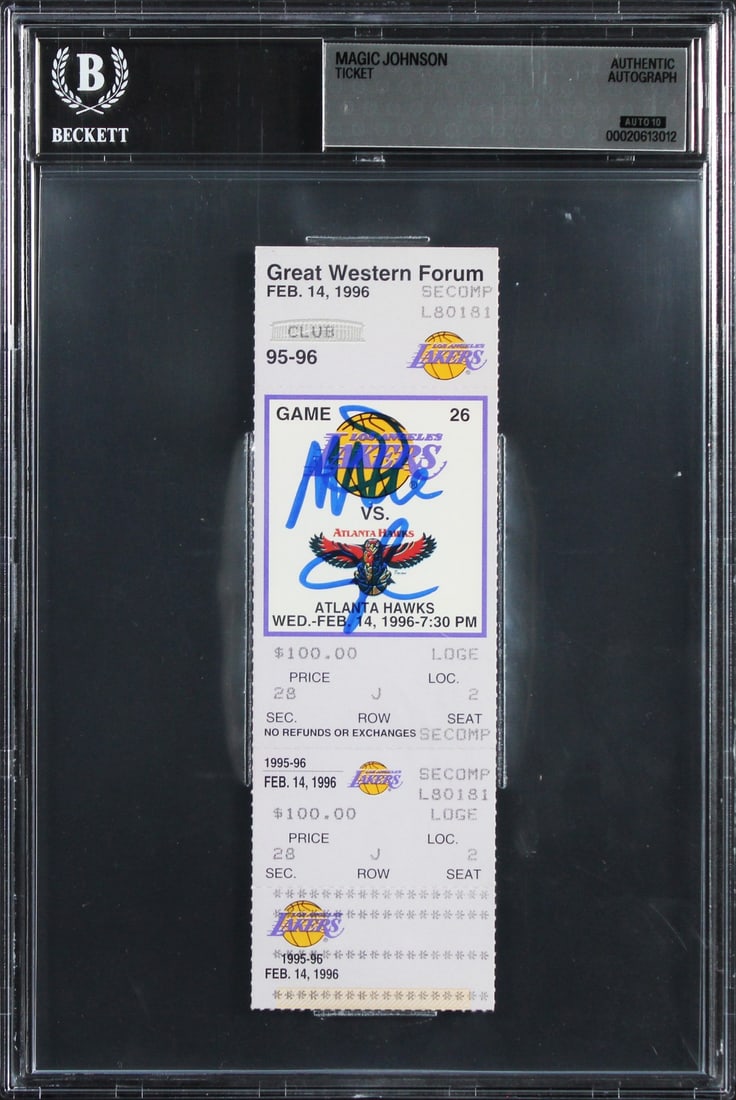 B
BECKETT
MAGIC JOHNSON
TICKET
AUTHENTIC
AUTOGRAPH
AUTO 10
00020613012
Great Western Forum
FEB. 14, 1996
SECOMP
L80181
CLUB
95-96
LOS ANGELES
LAKERS
GAME 26
LOS ANGELES
LAKERS
Magic
VS.
ATLANTA HAWKS
J
ATLANTA HAWKS
WED.-FEB. 14, 1996-7:30 PM
$100.00 LOGE
PRICE LOC.
28 J 2
SEC. ROW SEAT
NO REFUNDS OR EXCHANGES SECOMP
1995-96
FEB. 14, 1996
LOS ANGELES
LAKERS
SECOMP
L80181
$100.00 LOGE
PRICE LOC.
28 J 2
SEC. ROW SEAT
LOS ANGELES
LAKERS
1995-96
FEB. 14, 1996